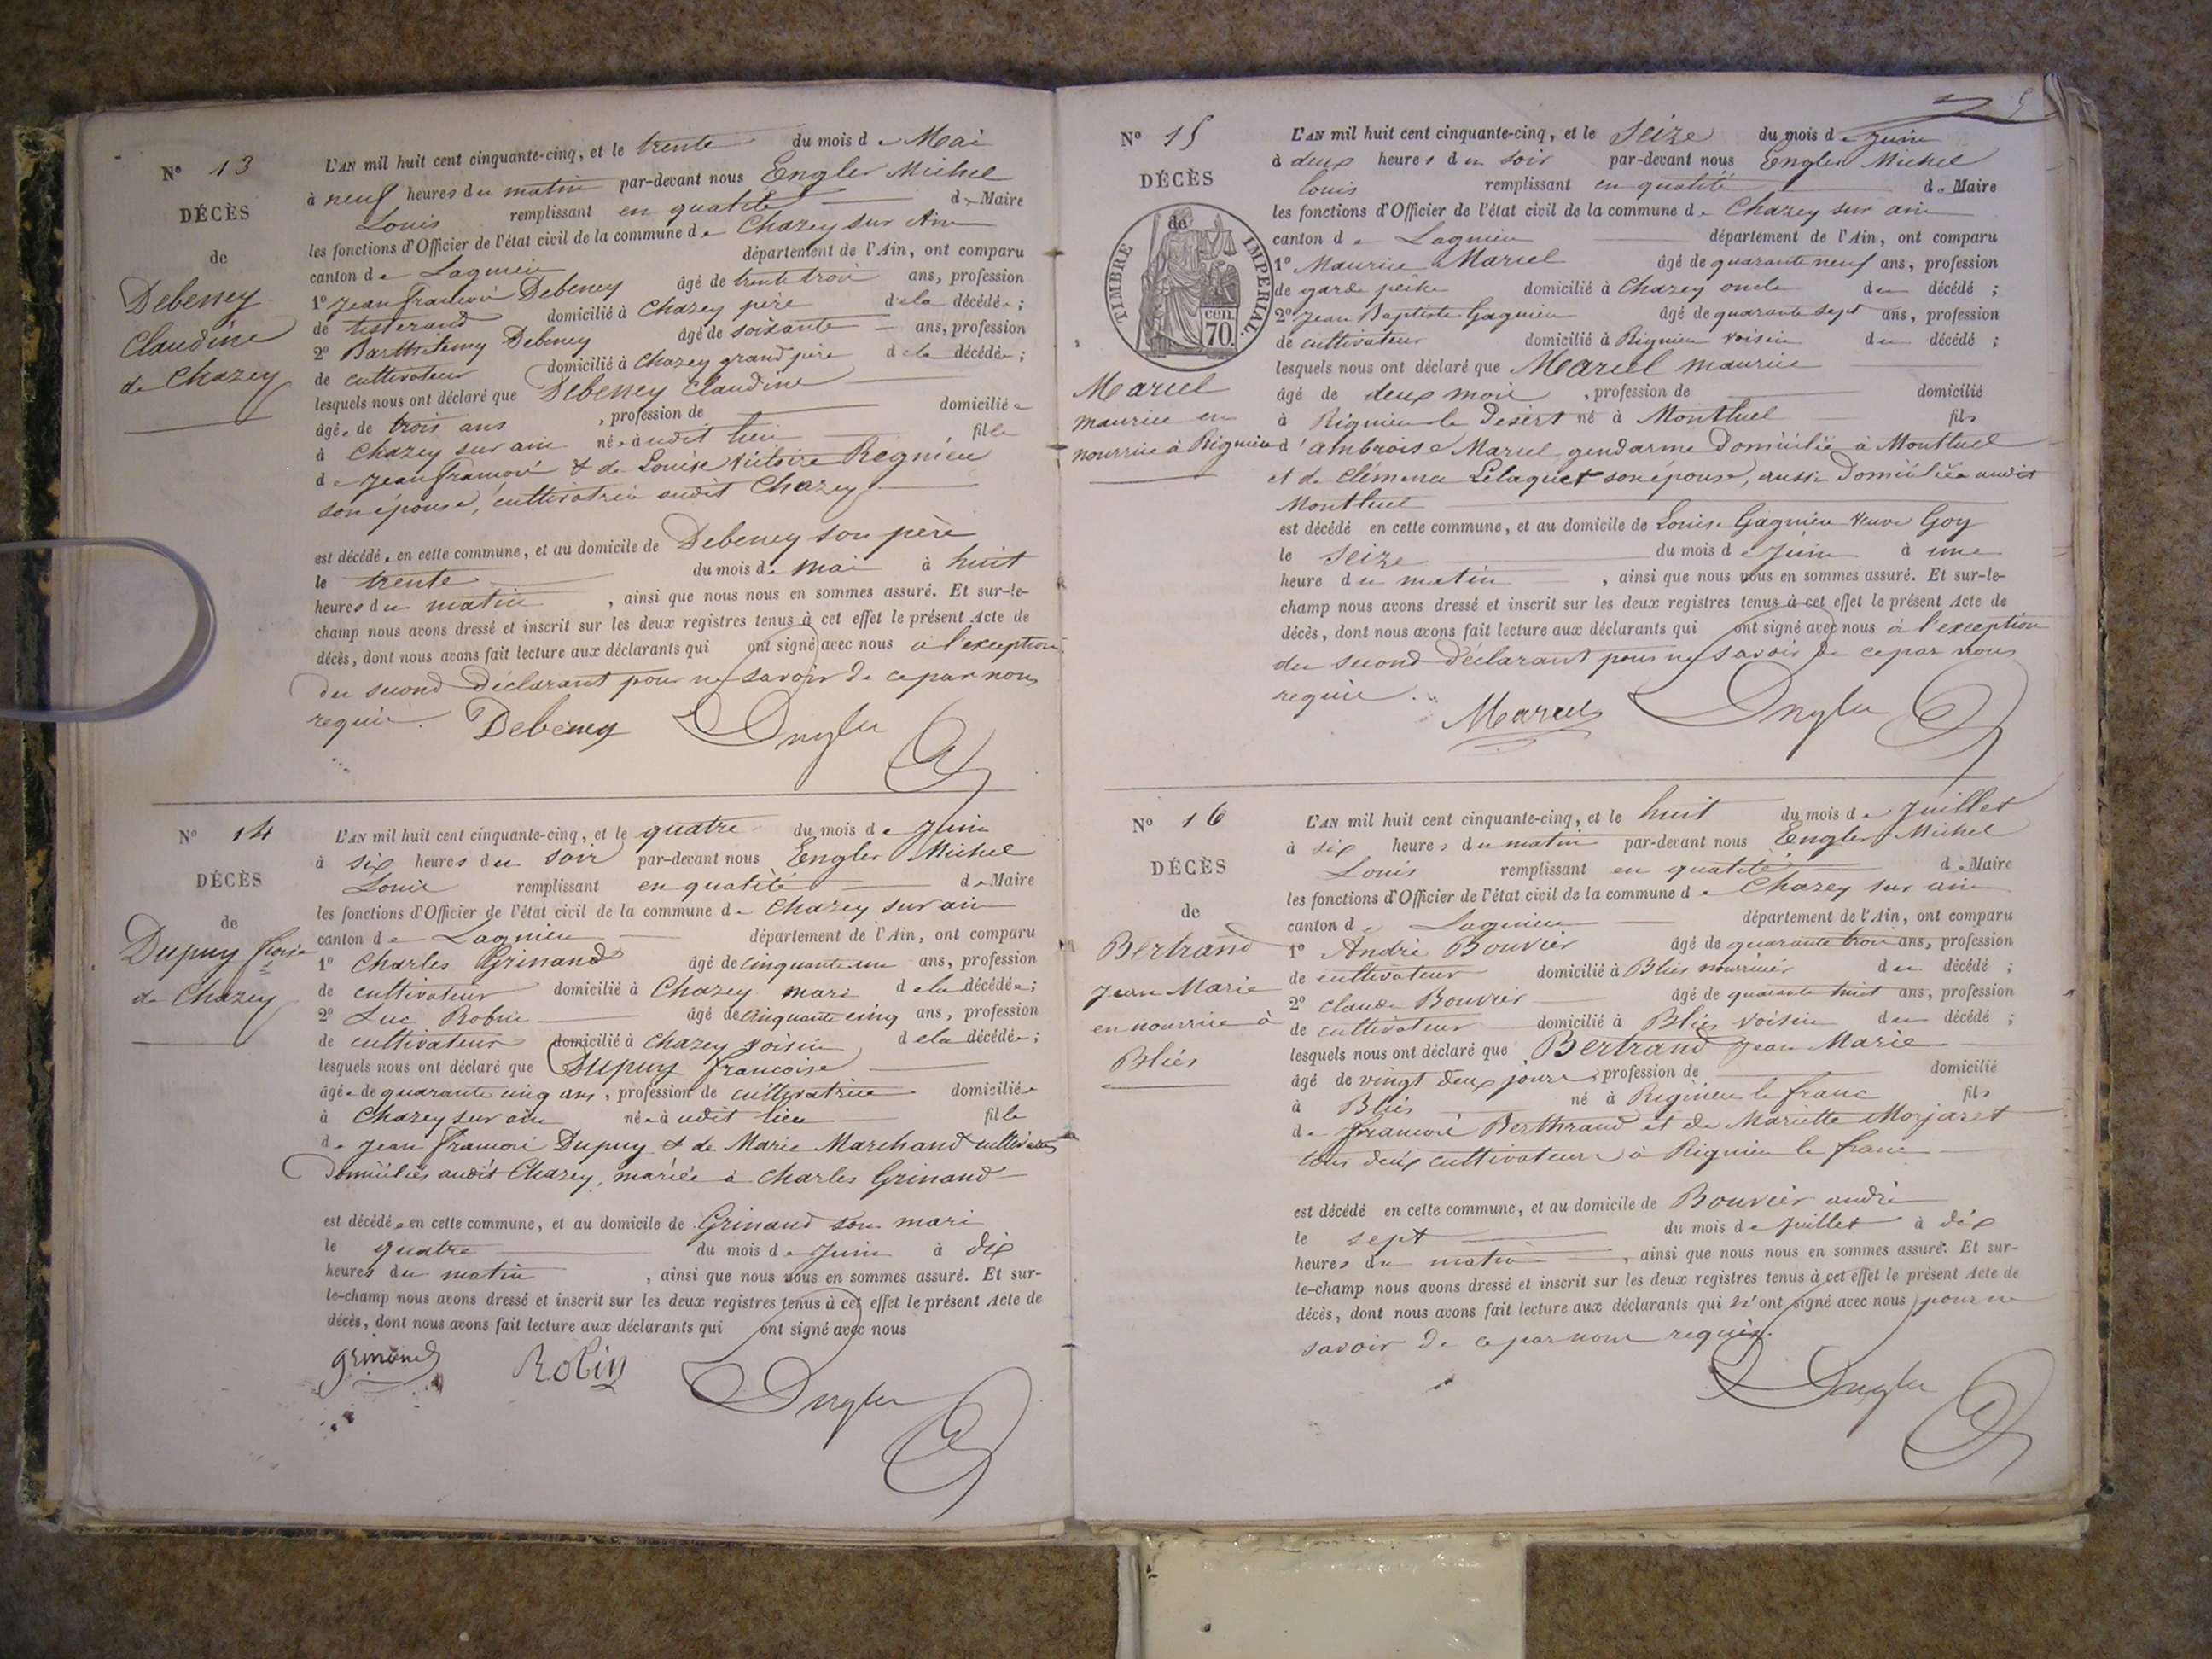 N° 13
DÉCÈS
de
Debeney
Claudine
de Chazey
L'AN mil huit cent cinquante-cinq, et le trente du mois de Mai
à neuf heures du matin par-devant nous Engler Michel
Louis remplissant en qualité de Maire
les fonctions d'Officier de l'état civil de la commune de Chazey sur Ain
canton de Lagnieu département de l'Ain, ont comparu
1° Jean françois Debeney âgé de trente trois ans, profession
de tisserand domicilié à Chazey père de la décédée ;
2° Barthelemy Debeney âgé de soixante ans, profession
de cultivateur domicilié à Chazey grand père de la décédée ;
lesquels nous ont déclaré que Debeney Claudine
âgée de trois ans , profession de domiciliée
à Chazey sur ain née audit lieu fille
de Jean françois & de Louise Victoire Regnieu
son épouse, cultivatrice audit Chazey
est décédée en cette commune, et au domicile de Debeney son père
le trente du mois de mai à huit
heures du matin , ainsi que nous nous en sommes assuré. Et sur-le-
champ nous avons dressé et inscrit sur les deux registres tenus à cet effet le présent Acte de
décès, dont nous avons fait lecture aux déclarants qui ont signé avec nous à l'exception
du second déclarant pour ne savoir de ce par nous
requis. Debeney Engler
N° 14
DÉCÈS
de
Dupuy
de Chazey
L'AN mil huit cent cinquante-cinq, et le quatre du mois de Juin
à six heures du soir par-devant nous Engler Michel
Louis remplissant en qualité de Maire
les fonctions d'Officier de l'état civil de la commune de Chazey sur ain
canton de Lagnieu département de l'Ain, ont comparu
1° Charles Grinand âgé de cinquante un ans, profession
de cultivateur domicilié à Chazey mari de la décédée ;
2° Luc Robin âgé de cinquante cinq ans, profession
de cultivateur domicilié à Chazey voisin de la décédée ;
lesquels nous ont déclaré que Dupuy francoise
âgée de quarante cinq ans , profession de cultivatrice domiciliée
à Chazey sur ain née audit lieu fille
de Jean françois Dupuy & de Marie Marchand cultivateurs
Domiciliés audit Chazey, mariée à Charles Grinand
est décédée en cette commune, et au domicile de Grinand son mari
le quatre du mois de Juin à dix
heures du matin , ainsi que nous nous en sommes assuré. Et sur-
le-champ nous avons dressé et inscrit sur les deux registres tenus à cet effet le présent Acte de
décès, dont nous avons fait lecture aux déclarants qui ont signé avec nous
Grinand Robin Engler
N° 15
DÉCÈS
de
TIMBRE IMPÉRIAL.
70 cen.
Marcel
maurice en
nourrice à Rignieu
L'AN mil huit cent cinquante-cinq, et le Seize du mois de Juin
à deux heures du soir par-devant nous Engler Michel
Louis remplissant en qualité de Maire
les fonctions d'Officier de l'état civil de la commune de Chazey sur ain
canton de Lagnieu département de l'Ain, ont comparu
1° Maurice Marcel âgé de quarante neuf ans, profession
de garde pêche domicilié à Chazey oncle du décédé ;
2° Jean Baptiste Gagnieu âgé de quarante sept ans, profession
de cultivateur domicilié à Rignieu voisin du décédé ;
lesquels nous ont déclaré que Marcel maurice
âgé de deux mois , profession de domicilié
à Rignieu le Desert né à Montluel fils
d'ambroise Marcel gendarme Domicilié à Montluel
et de Clémence Lelaquet son épouse, aussi Domiciliée audit
Montluel
est décédé en cette commune, et au domicile de Louise Gagnieu veuve Goy
le Seize du mois de Juin à une
heure du matin , ainsi que nous nous en sommes assuré. Et sur-le-
champ nous avons dressé et inscrit sur les deux registres tenus à cet effet le présent Acte de
décès, dont nous avons fait lecture aux déclarants qui ont signé avec nous à l'exception
du second déclarant pour ne savoir de ce par nous
requis. Marcel Engler
N° 16
DÉCÈS
de
Bertrand
Jean Marie
en nourrice à
Bliés
L'AN mil huit cent cinquante-cinq, et le huit du mois de Juillet
à six heures du matin par-devant nous Engler Michel
Louis remplissant en qualité de Maire
les fonctions d'Officier de l'état civil de la commune de Chazey sur ain
canton de Lagnieu département de l'Ain, ont comparu
1° André Bouvier âgé de quarante trois ans, profession
de cultivateur domicilié à Bliés nourricier du décédé ;
2° Claude Bouvier âgé de quarante huit ans, profession
de cultivateur domicilié à Bliés voisin du décédé ;
lesquels nous ont déclaré que Bertrand Jean Marie
âgé de vingt deux jours , profession de domicilié
à Bliés né à Rignieu le franc fils
de françois Berthrand et de Mariette Morjaret
tous deux cultivateurs à Rignieu le franc
est décédé en cette commune, et au domicile de Bouvier andré
le sept du mois de juillet à dix
heures du matin , ainsi que nous nous en sommes assuré. Et sur-
le-champ nous avons dressé et inscrit sur les deux registres tenus à cet effet le présent Acte de
décès, dont nous avons fait lecture aux déclarants qui n'ont signé avec nous pour ne
savoir de ce par nous requis.
Engler